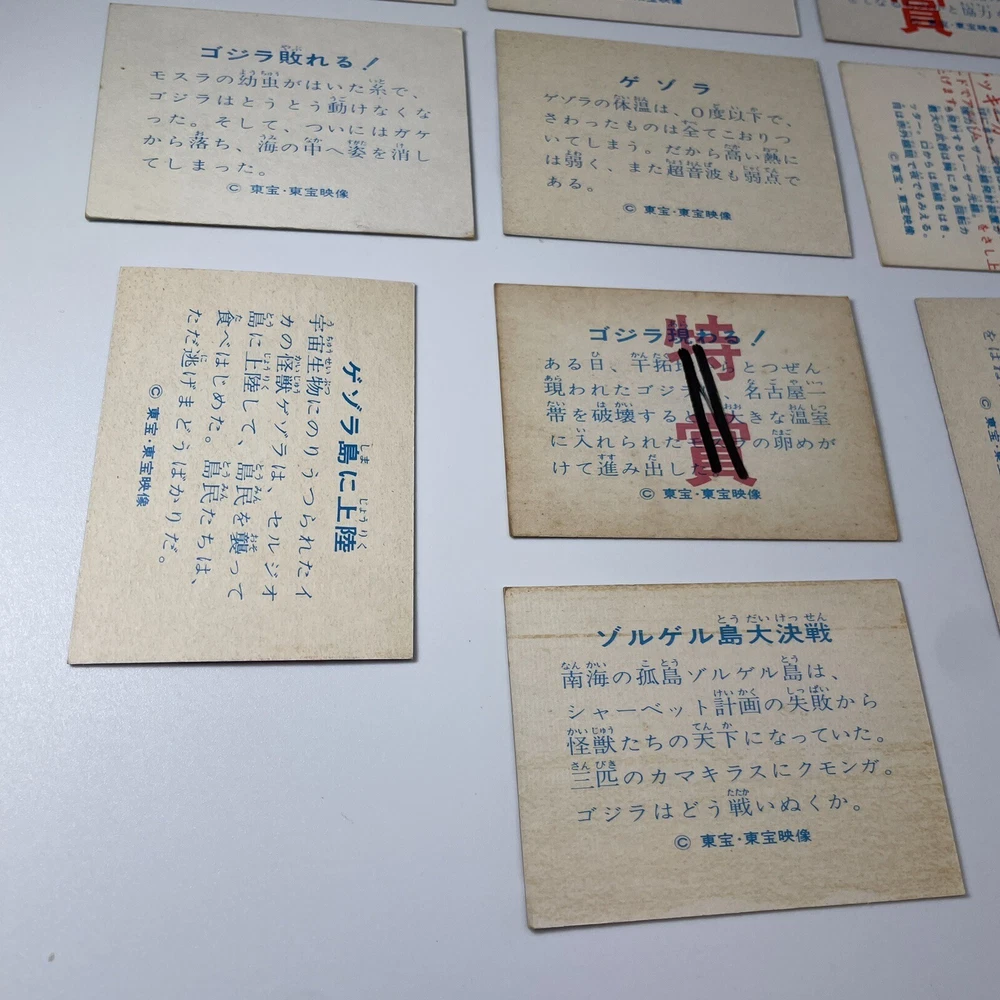 東宝映像
ゴジラ敗れる！
モスラの幼虫がはいた糸で、
ゴジラはとうとう動けなくな
った。そして、ついにはガケ
から落ち、海の中へ姿を消し
てしまった。
© 東宝・東宝映像
ゲゾラ
ゲゾラの体温は、0度以下で、
さわったものは全てこおりつ
いてしまう。だから高い熱に
は弱く、また超音波も弱点で
ある。
© 東宝・東宝映像
賞
© 東宝・東宝映像
ゲゾラ島に上陸
宇宙生物にのりうつられたイ
カの怪獣ゲゾラは、セルジオ
島に上陸して、島民を襲って
食べはじめた。島民たちは、
ただ逃げまどうばかりだ。
© 東宝・東宝映像
特賞
ゴジラ現わる！
ある日、干拓 とつぜん
現われたゴジ 、名古屋一
帯を破壊すると 大きな温室
に入れられた ラの卵めが
けて進み出した
© 東宝・東宝映像
ゾルゲル島大決戦
南海の孤島ゾルゲル島は、
シャーベット計画の失敗から
怪獣たちの天下になっていた。
三匹のカマキラスにクモンガ。
ゴジラはどう戦いぬくか。
© 東宝・東宝映像